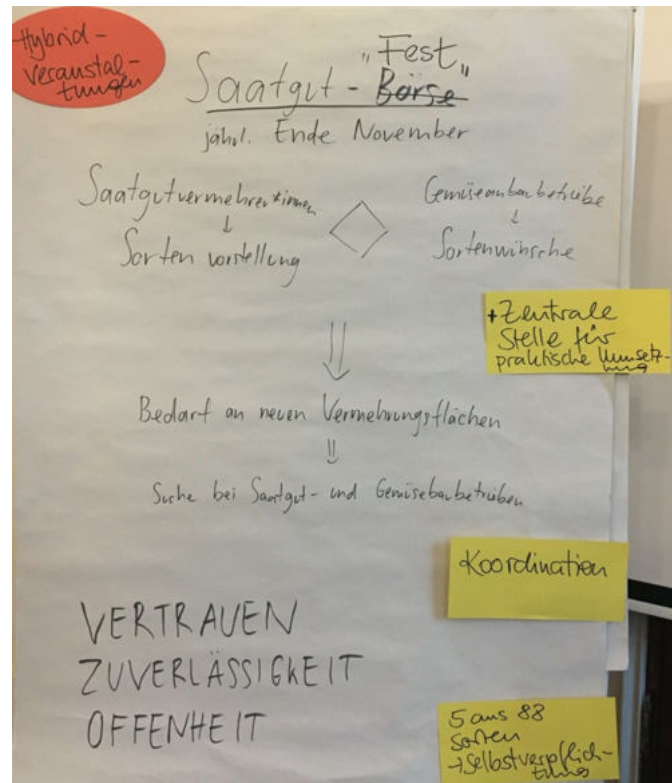 Hybrid-
veranstal-
tungen
„Fest„
Saatgut - Börse
jährl. Ende November
Saatgutvermehrer*innen
↓
Sorten vorstellung
Gemüseanbaubetriebe
↓
Sortenwünsche
+Zentrale
Stelle für
praktische Umsetz-
ung
⇓
Bedarf an neuen Vermehrungsflächen
⇓
Suche bei Saatgut- und Gemüsebaubetrieben
Koordination
VERTRAUEN
ZUVERLÄSSIGKEIT
OFFENHEIT
5 aus 88
Sorten
→Selbstverpflich-
tung